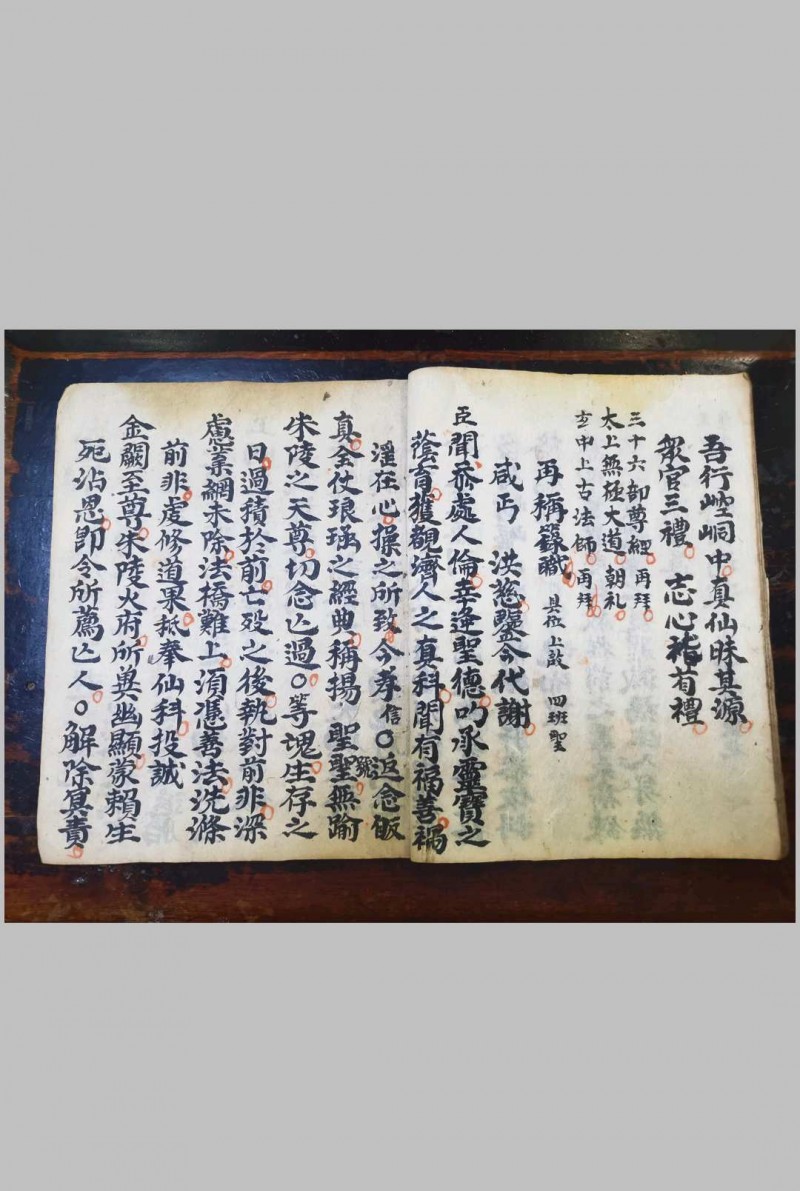 吾行崆峒中真仙昧其源
眾官三禮 志心稽首禮
三十六部尊經 再拜
太上無極大道 朝礼
玄中上古法師 再拜
再稱籙職 具位上啟 四班聖
咸丐 洪慈鑒今代謝
臣聞忝處人倫幸逢聖德叨承靈寶之
蔭育獲觀濟人之真科聞有福善禍
淫在心操之所致今孝信〇追念皈
真全仗琅函之經典稱揚聖號聖無踰
朱陵之天尊切念亾過〇等塊生存之
日過積於前亡歿之後執對前非深
慮業網未除法橋難上須憑善法洗滌
前非虔修道果抵奉仙科投誠
金闕至尊朱陵火府所兾幽顯蒙賴生
死沾恩即令所薦亾人〇解除冥責